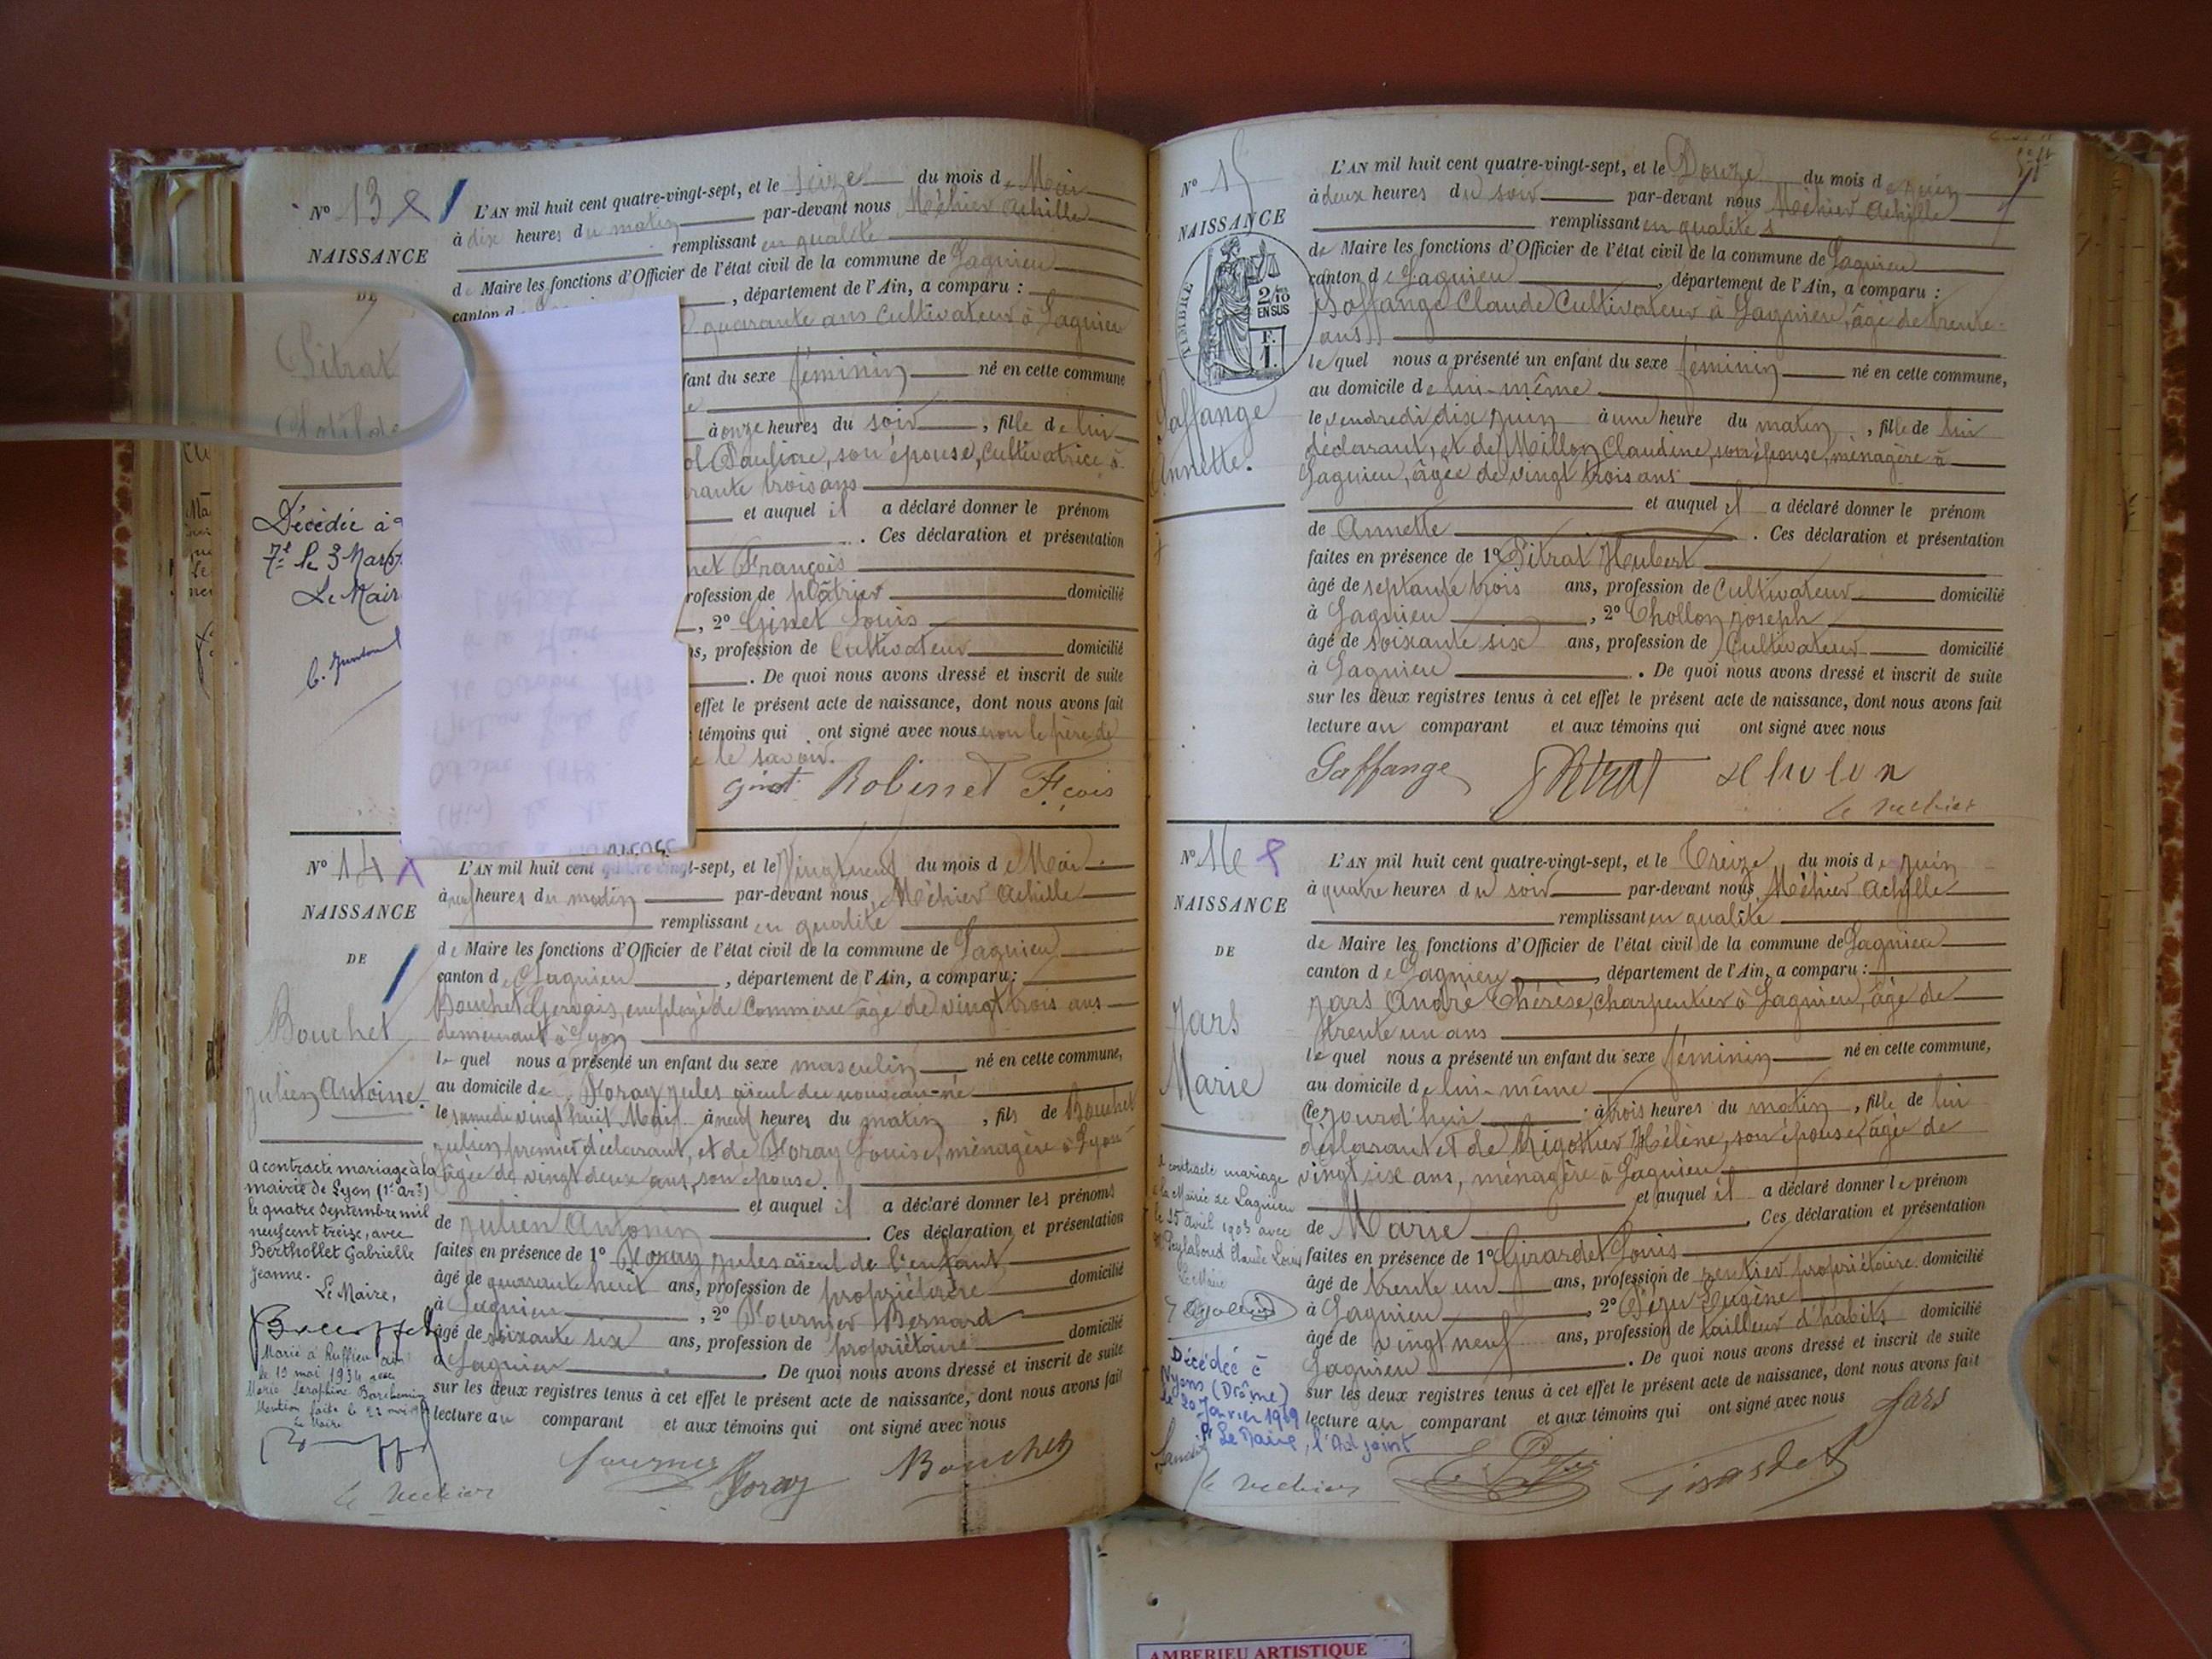 N° 13
NAISSANCE
DE
Sitrat
Clotilde
Décédée à
7e le 3 Mars
Le Maire
L'AN mil huit cent quatre-vingt-sept, et le seize du mois de Mai
à dix heures du matin par-devant nous Méhier Achille
remplissant en qualité
de Maire les fonctions d'Officier de l'état civil de la commune de Lagnieu
canton d , département de l'Ain, a comparu :
quarante ans Cultivateur à Lagnieu
fant du sexe féminin né en cette commune
à onze heures du soir , fille de lui
Pauline, son épouse, Cultivatrice à
rante trois ans
et auquel il a déclaré donner le prénom
. Ces déclaration et présentation
net François
rofession de plâtrier domicilié
, 2° Ginet Louis
ns, profession de Cultivateur domicilié
. De quoi nous avons dressé et inscrit de suite
effet le présent acte de naissance, dont nous avons fait
témoins qui ont signé avec nous non le père de
le savoir.
Ginet Robinet Fçois
N° 14
NAISSANCE
DE
Bouchet
Julien Antoine.
A contracté mariage à la
mairie de Lyon (1er arrt)
le quatre Septembre mil
neuf cent treize, avec
Berthollet Gabrielle
Jeanne.
Le Maire,
Marié à Ruffieu Ain
le 19 mai 1934 avec
Marie Séraphine
Mention faite le 23 mai
Le Maire
L'AN mil huit cent quatre-vingt-sept, et le Vingt neuf du mois de Mai
à neuf heures du matin par-devant nous, Méhier Achille
remplissant en qualité
de Maire les fonctions d'Officier de l'état civil de la commune de Lagnieu
canton de Lagnieu , département de l'Ain, a comparu :
Bouchet Gervais, employé de Commerce âgé de vingt trois ans
demeurant à Lyon
le quel nous a présenté un enfant du sexe masculin né en cette commune,
au domicile de Foray Jules aïeul du nouveau-né
le samedi vingt huit Mai à neuf heures du matin , fils de Bouchet
Julien premier déclarant, et de Foray Louise, ménagère à Lyon
âgée de vingt deux ans, son épouse.
et auquel il a déclaré donner les prénoms
de Julien Antonin . Ces déclaration et présentation
faites en présence de 1° Foray Jules aïeul de l'enfant
âgé de quarante huit ans, profession de propriétaire domicilié
à Lagnieu , 2° Fournier Bernard
âgé de soixante six ans, profession de propriétaire domicilié
à Lagnieu . De quoi nous avons dressé et inscrit de suite
sur les deux registres tenus à cet effet le présent acte de naissance, dont nous avons fait
lecture au comparant et aux témoins qui ont signé avec nous
Fournier Foray Bouchet
A Méhier
N° 15
NAISSANCE
TIMBRE
2/10 EN SUS
F. 1.
Laffange
Annette.
L'AN mil huit cent quatre-vingt-sept, et le Douze du mois de juin
à deux heures du soir par-devant nous Méhier Achille
remplissant en qualité
de Maire les fonctions d'Officier de l'état civil de la commune de Lagnieu
canton de Lagnieu , département de l'Ain, a comparu :
Laffange Claude Cultivateur à Lagnieu, âgé de trente
ans
le quel nous a présenté un enfant du sexe féminin né en cette commune,
au domicile de lui-même
le vendredi dix juin à une heure du matin , fille de lui
déclarant, et de Millon Claudine, son épouse, ménagère à
Lagnieu, âgée de vingt trois ans
et auquel il a déclaré donner le prénom
de Annette . Ces déclaration et présentation
faites en présence de 1° Sitrat Hubert
âgé de septante trois ans, profession de Cultivateur domicilié
à Lagnieu , 2° Chollon joseph
âgé de soixante six ans, profession de Cultivateur domicilié
à Lagnieu . De quoi nous avons dressé et inscrit de suite
sur les deux registres tenus à cet effet le présent acte de naissance, dont nous avons fait
lecture au comparant et aux témoins qui ont signé avec nous
Laffange Sitrat
A Méhier
N° 16
NAISSANCE
DE
Jars
Marie
A contracté mariage
à la Mairie de Lagnieu
le 25 avril 1903 avec
Peylaboud Claude Louis
Le Maire
Décédée à
Nyons (Drôme)
le 20 Janvier 1969
Pr Le Maire, l'Adjoint
L'AN mil huit cent quatre-vingt-sept, et le Treize du mois de juin
à quatre heures du soir par-devant nous Méhier Achille
remplissant en qualité
de Maire les fonctions d'Officier de l'état civil de la commune de Lagnieu
canton de Lagnieu , département de l'Ain, a comparu :
Jars André Thérèse, charpentier à Lagnieu, âgé de
trente un ans
le quel nous a présenté un enfant du sexe féminin né en cette commune,
au domicile de lui-même
Cejourd'hui à trois heures du matin , fille de lui
déclarant et de Rigottier Hélène, son épouse, âgée de
vingt six ans, ménagère à Lagnieu
et auquel il a déclaré donner le prénom
de Marie . Ces déclaration et présentation
faites en présence de 1° Girardet Louis
âgé de trente un ans, profession de rentier propriétaire domicilié
à Lagnieu , 2° Eugène
âgé de vingt neuf ans, profession de tailleur d'habits domicilié
Lagnieu . De quoi nous avons dressé et inscrit de suite
sur les deux registres tenus à cet effet le présent acte de naissance, dont nous avons fait
lecture au comparant et aux témoins qui ont signé avec nous Jars
A Méhier Girardet
AMBERIEU ARTISTIQUE